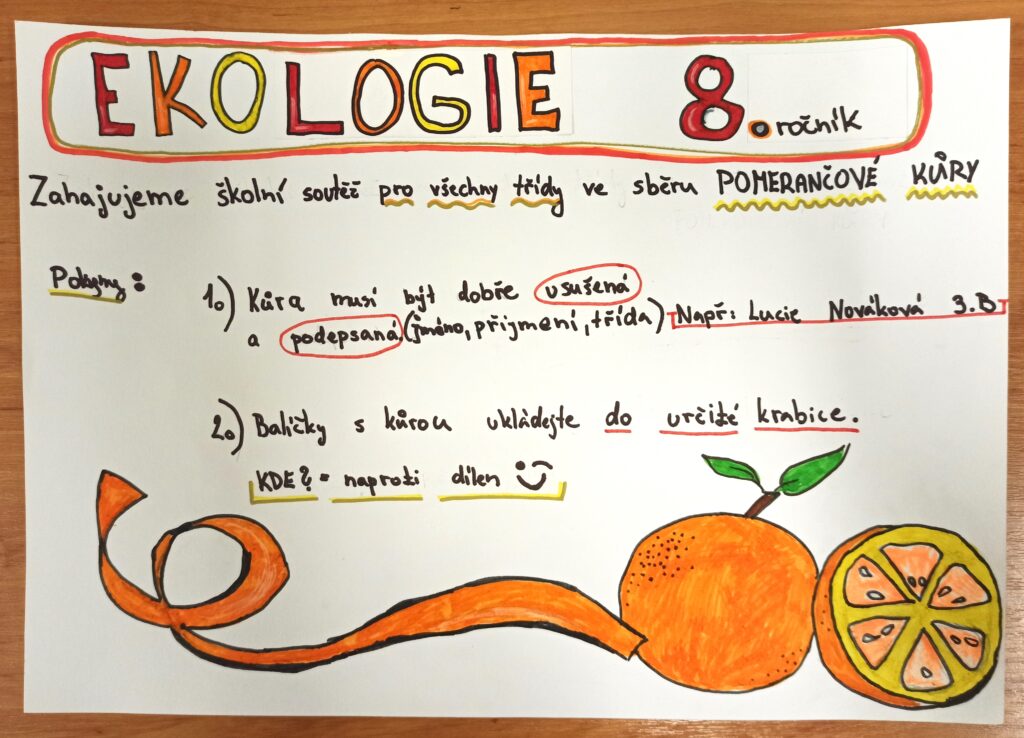 EKOLOGIE 8. ročník
Zahajujeme školní soutěž pro všechny třídy ve sběru POMERANČOVÉ KŮRY
Pokyny:
1.) Kůra musí být dobře usušená
a podepsaná (jméno, příjmení, třída) Např: Lucie Nováková 3.B
2.) Balíčky s kůrou ukládejte do určité krabice.
KDE? = naproti dílen